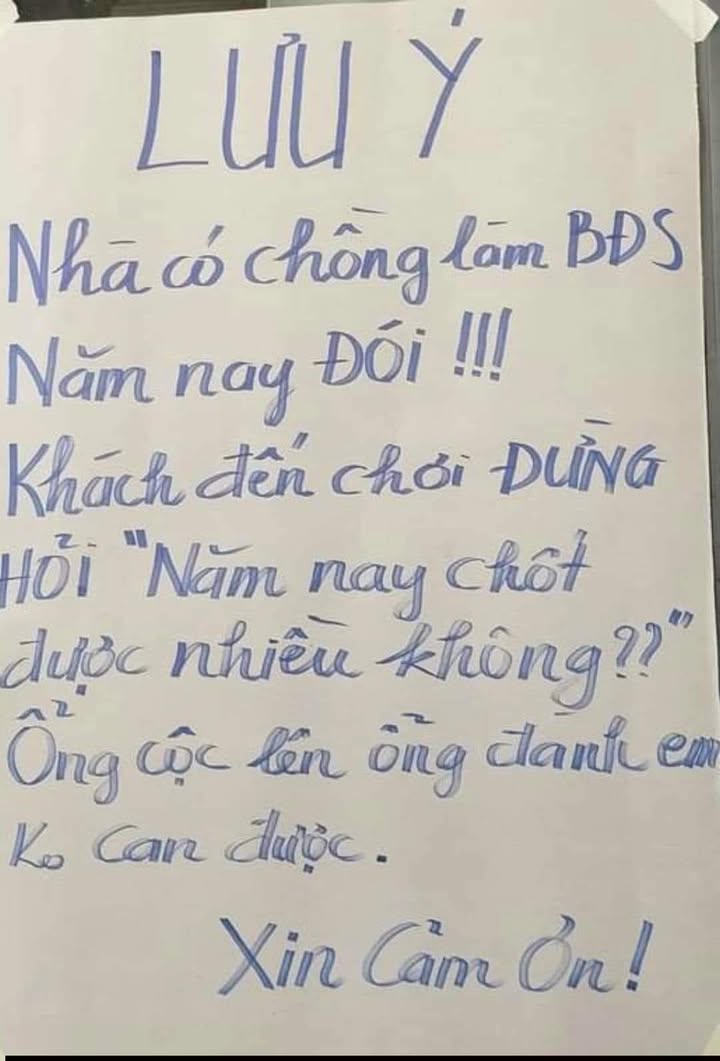 LƯU Ý
Nhà có chồng làm BĐS
Năm nay ĐÓI !!!
Khách đến chơi ĐỪNG
HỎI "Năm nay chốt
được nhiều không??"
Ổng cộc lên ổng đánh em
Ko can được.
Xin Cảm Ơn!